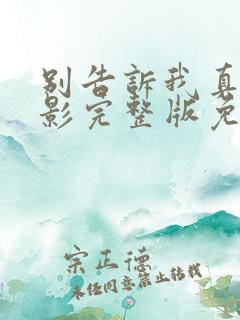 别告訴我真
影完整版免
宗正德
未经同意禁止转载